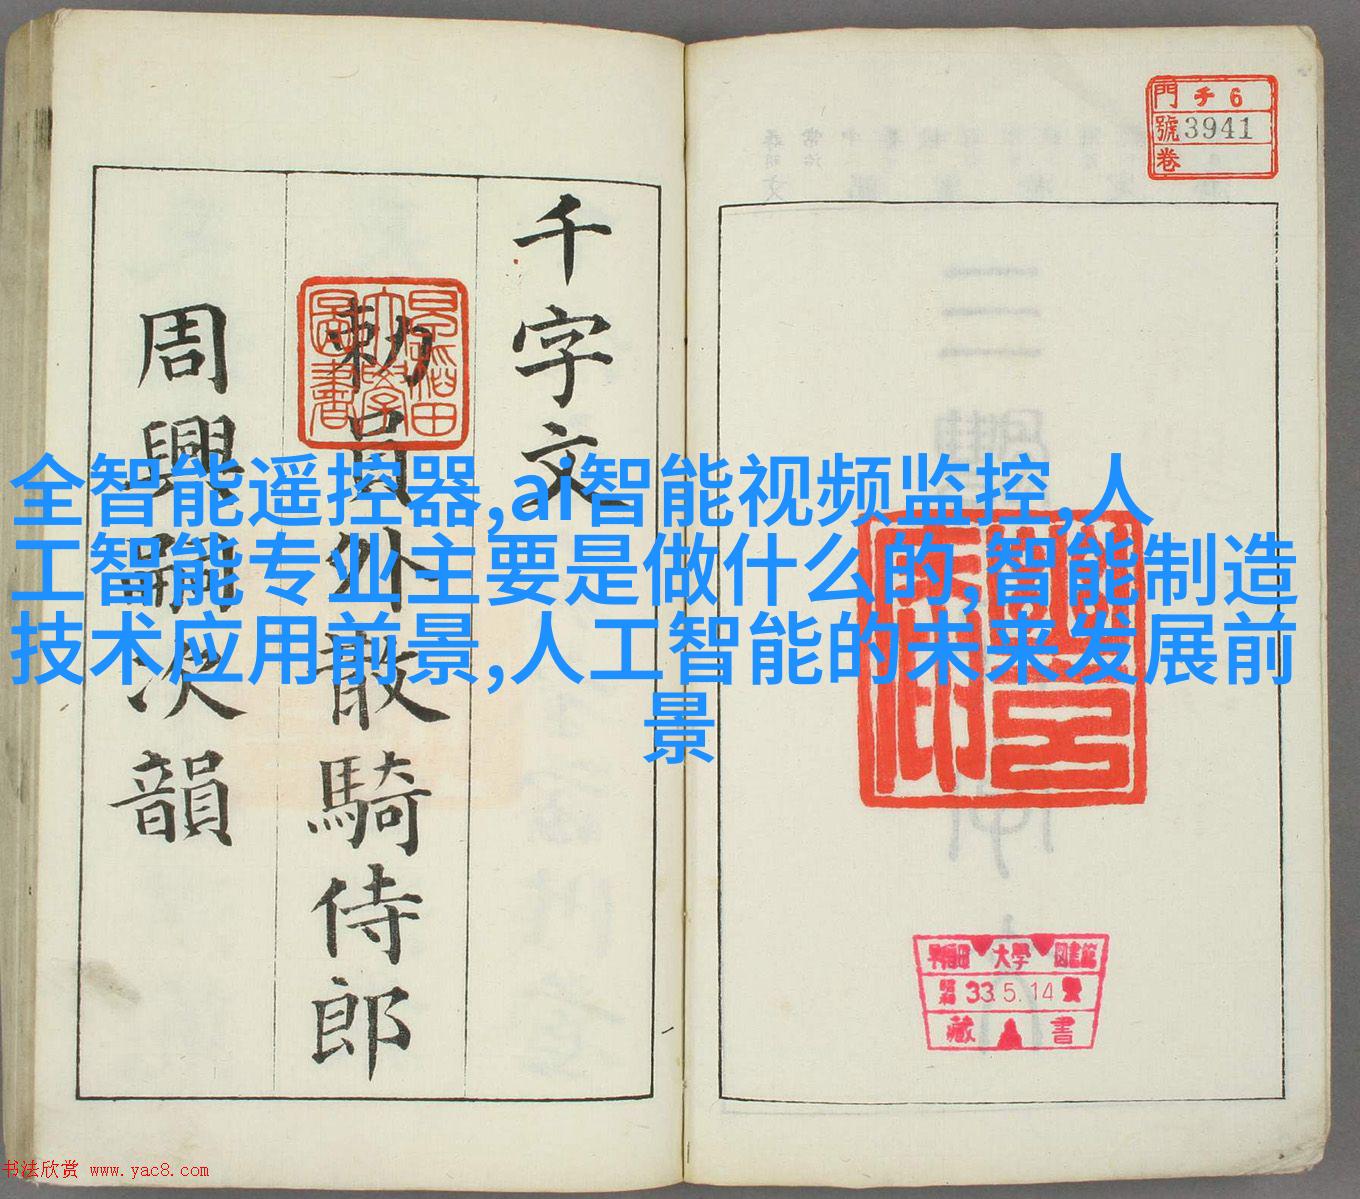 門 チ6
號 3941
卷
千字文
勅員外散騎侍郎
周興嗣次韻
早稲田大學圖書
全智能遥控器,ai智能视频监控,人
工智能专业主要是做什么的,智能制造
技术应用前景,人工智能的未来发展前
景
早稲田 大學 図書館
33.5.14
藏書
书法欣赏 www.yac8.com